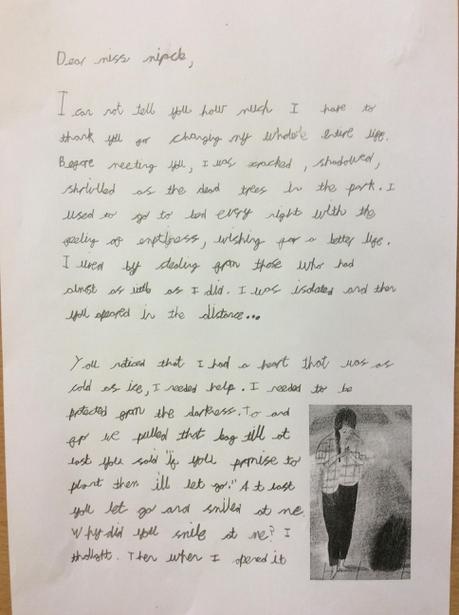 Dear miss nipcle,
I can not tell you how much I have to
thank you for changing my whole entire life.
Before meeting you, I was cracked, shadowed,
shrivlled as the dead trees in the park. I
used to go to bed every night with the
feeling of emptiness, wishing for a better life.
I lived by stealing from those who had
almost as little as I did. I was isolated and then
you apeared in the distance...
You noticed that I had a heart that was as
cold as ice, I needed help. I needed to be
protected from the darkness. To and
fro we pulled that bag till at
last you said "if you promise to
plant then ill let go." At last
you let go and smiled at me.
Why did you smile at me? I
thought. Then when I opened it